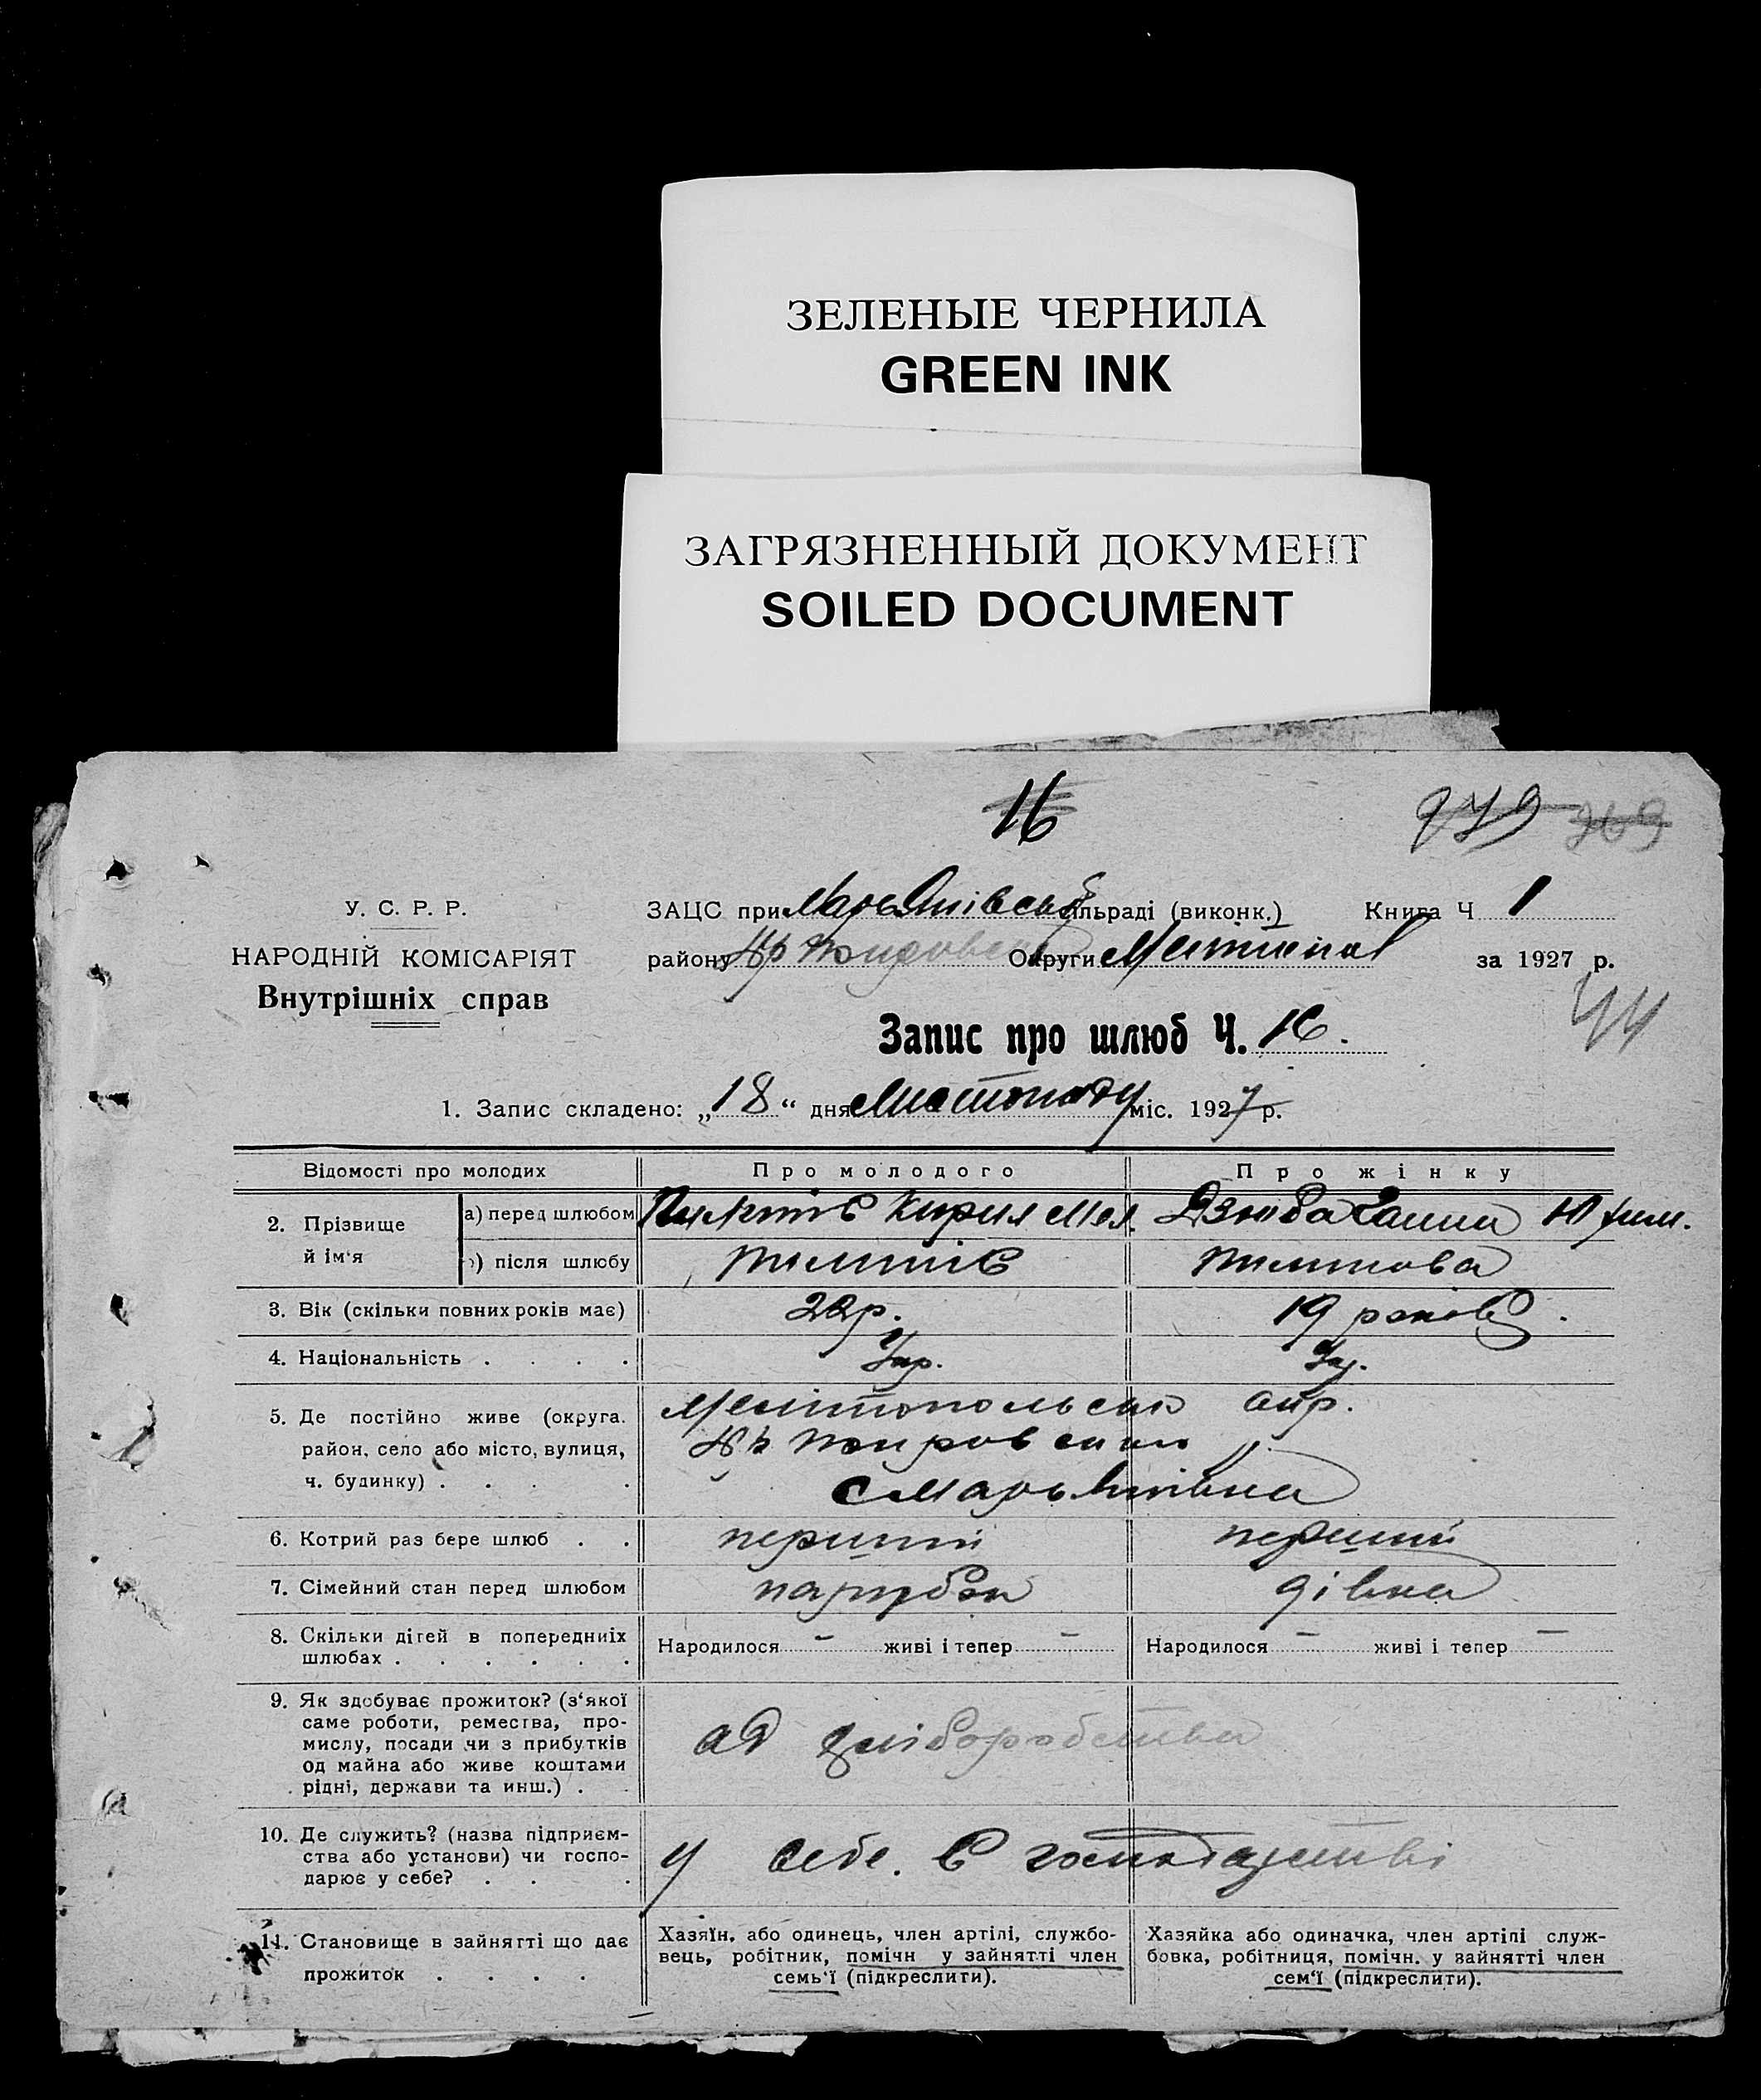 ЗЕЛЕНЫЕ ЧЕРНИЛА
GREEN INK
ЗАГРЯЗНЕННЫЙ ДОКУМЕНТ
SOILED DOCUMENT
16
279 269
У. С. Р. Р.
НАРОДНІЙ КОМІСАРІЯТ
Внутрішніх справ
ЗАЦС при Марьянівській сільраді (виконк.) Книга Ч 1
району Округи Меліпол за 1927 р.
44
Запис про шлюб Ч. 16.
1. Запис складено: „18“ дня Листопаду міс. 1927 р.
Відомості про молодих Про молодого Про жінку
2. Прізвище й ім‘я
а) перед шлюбом Кирил Мел. Дзюба Ганна Юхим.
б) після шлюбу
3. Вік (скільки повних років має) 22 р. 19 років.
4. Національність . . . . Укр. Ук.
5. Де постійно живе (округа, Мелітопольсько окр.
район, село або місто, вулиця,
ч. будинку) . . . . с Марьянівка
6. Котрий раз бере шлюб . . перший перший
7. Сімейний стан перед шлюбом парубок дівка
8. Скільки дітей в попередниіх Народилося – живі і тепер – Народилося – живі і тепер –
шлюбах . . . . . .
9. Як здобуває прожиток? (з‘якої
саме роботи, ремества, про-
мислу, посади чи з прибутків од хліборобства
од майна або живе коштами
рідні, держави та инш.) . .
10. Де служить? (назва підприєм-
ства або установи) чи госпо- у себе. в господарстві
дарює у себе? . . .
11. Становище в зайнятті що дає
прожиток . . . .
Хазяїн, або одинець, член артілі, службо-
вець, робітник, помічн у зайнятті член
семь‘ї (підкреслити).
Хазяйка або одиначка, член артілі служ-
бовка, робітниця, помічн. у зайнятті член
сем‘ї (підкреслити).